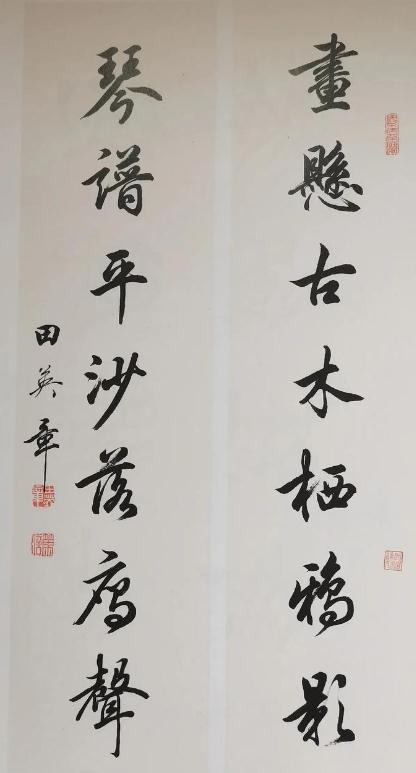 畫懸古木栖鴉影
琴譜平沙落雁聲
田英章